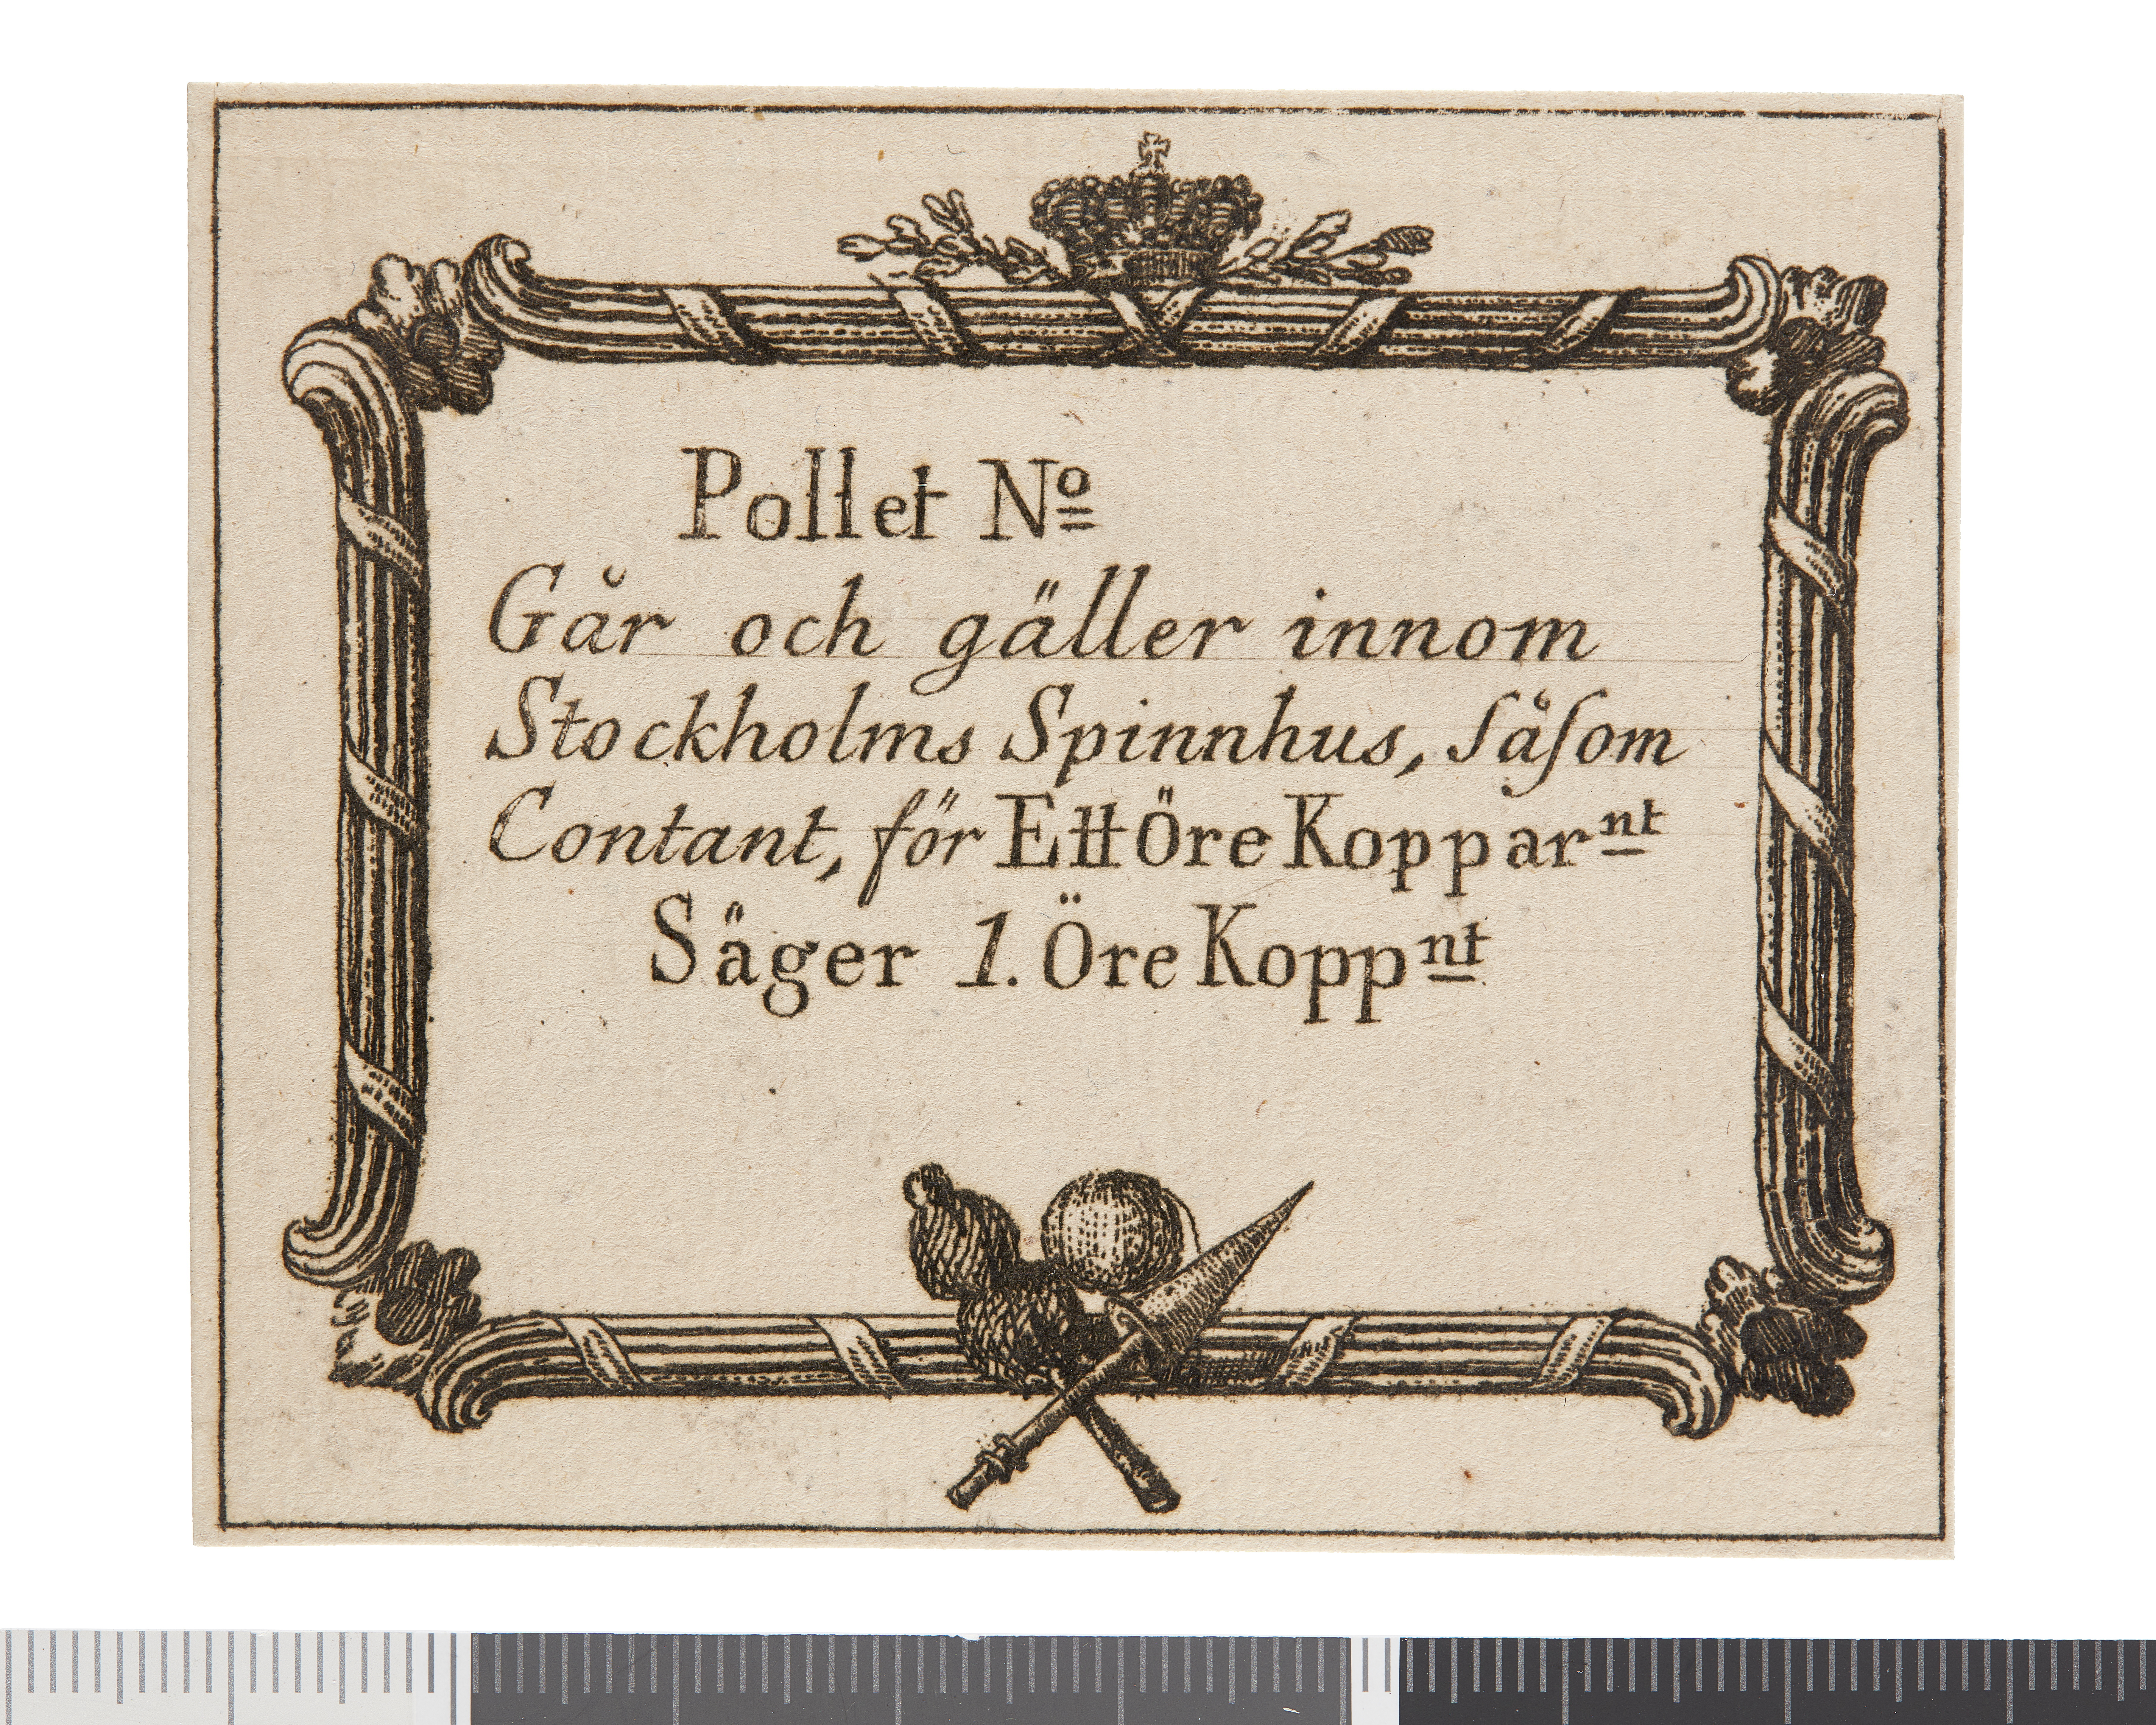 Pollet Nº
Går och gäller innom
Stockholms Spinnhus, ſåſom
Contant, för Ett Öre Kopparnt
Säger 1. Öre Koppnt